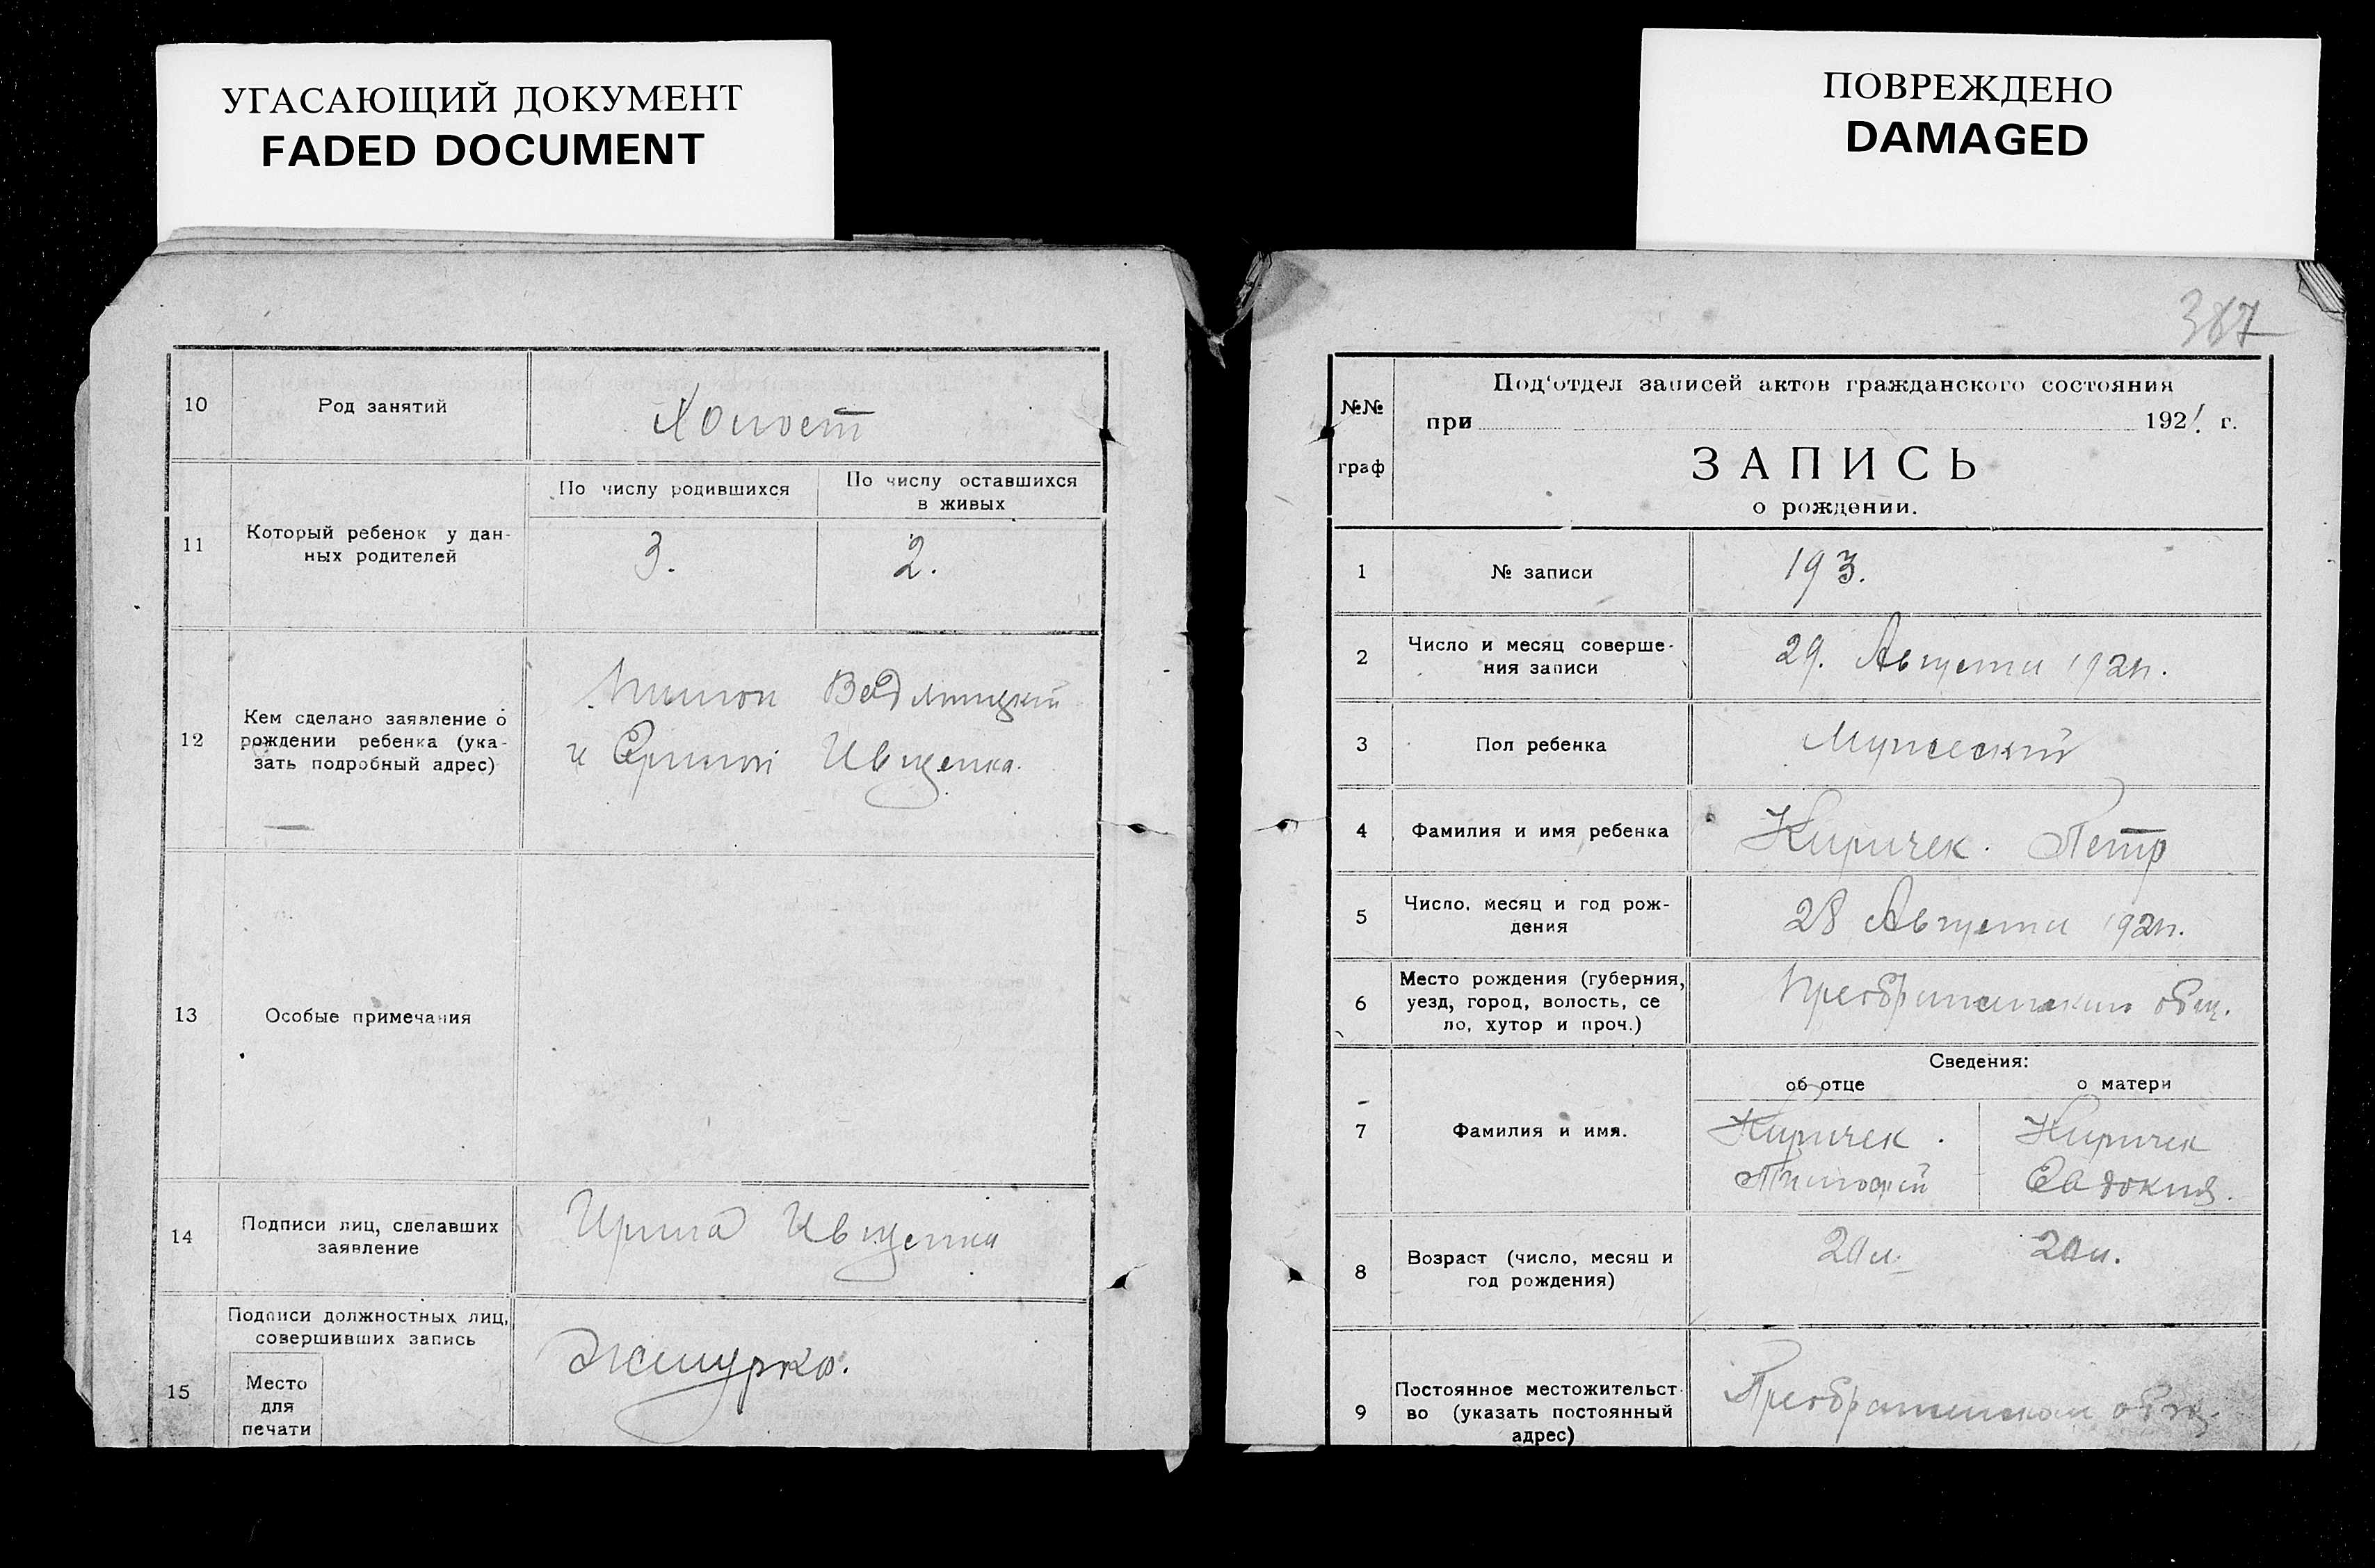 УГАСАЮЩИЙ ДОКУМЕНТ
FADED DOCUMENT
ПОВРЕЖДЕНО
DAMAGED
10
Род занятий
11
Который ребенок у дан-
ных родителей
По числу родившихся
По числу оставшихся
в живых
3.
2.
12
Кем сделано заявление о
рождении ребенка (ука-
зать подробный адрес)
и Иващенка.
13
Особые примечания
14
Подписи лиц, сделавших
заявление
Ирина Иващенка
15
Подписи должностных лиц,
совершивших запись
Место
для
печати
387
№№
граф
Под'отдел записей актов гражданского состояния
при 1921 г.
ЗАПИСЬ
о рождении.
1
№ записи
193.
2
Число и месяц соверше-
ния записи
29. Августа 1921г.
3
Пол ребенка
Мужеский
4
Фамилия и имя ребенка
Киричек. Петр
5
Число, месяц и год рож-
дения
28 Августа 1921г.
6
Место рождения (губерния,
уезд, город, волость, се
ло, хутор и проч.)
общ.
7
Фамилия и имя.
Сведения:
об отце
о матери
Киричек.
Тимофей
Киричек
Евдокия.
8
Возраст (число, месяц и
год рождения)
9
Постоянное местожительст-
во (указать постоянный
адрес)
общ.